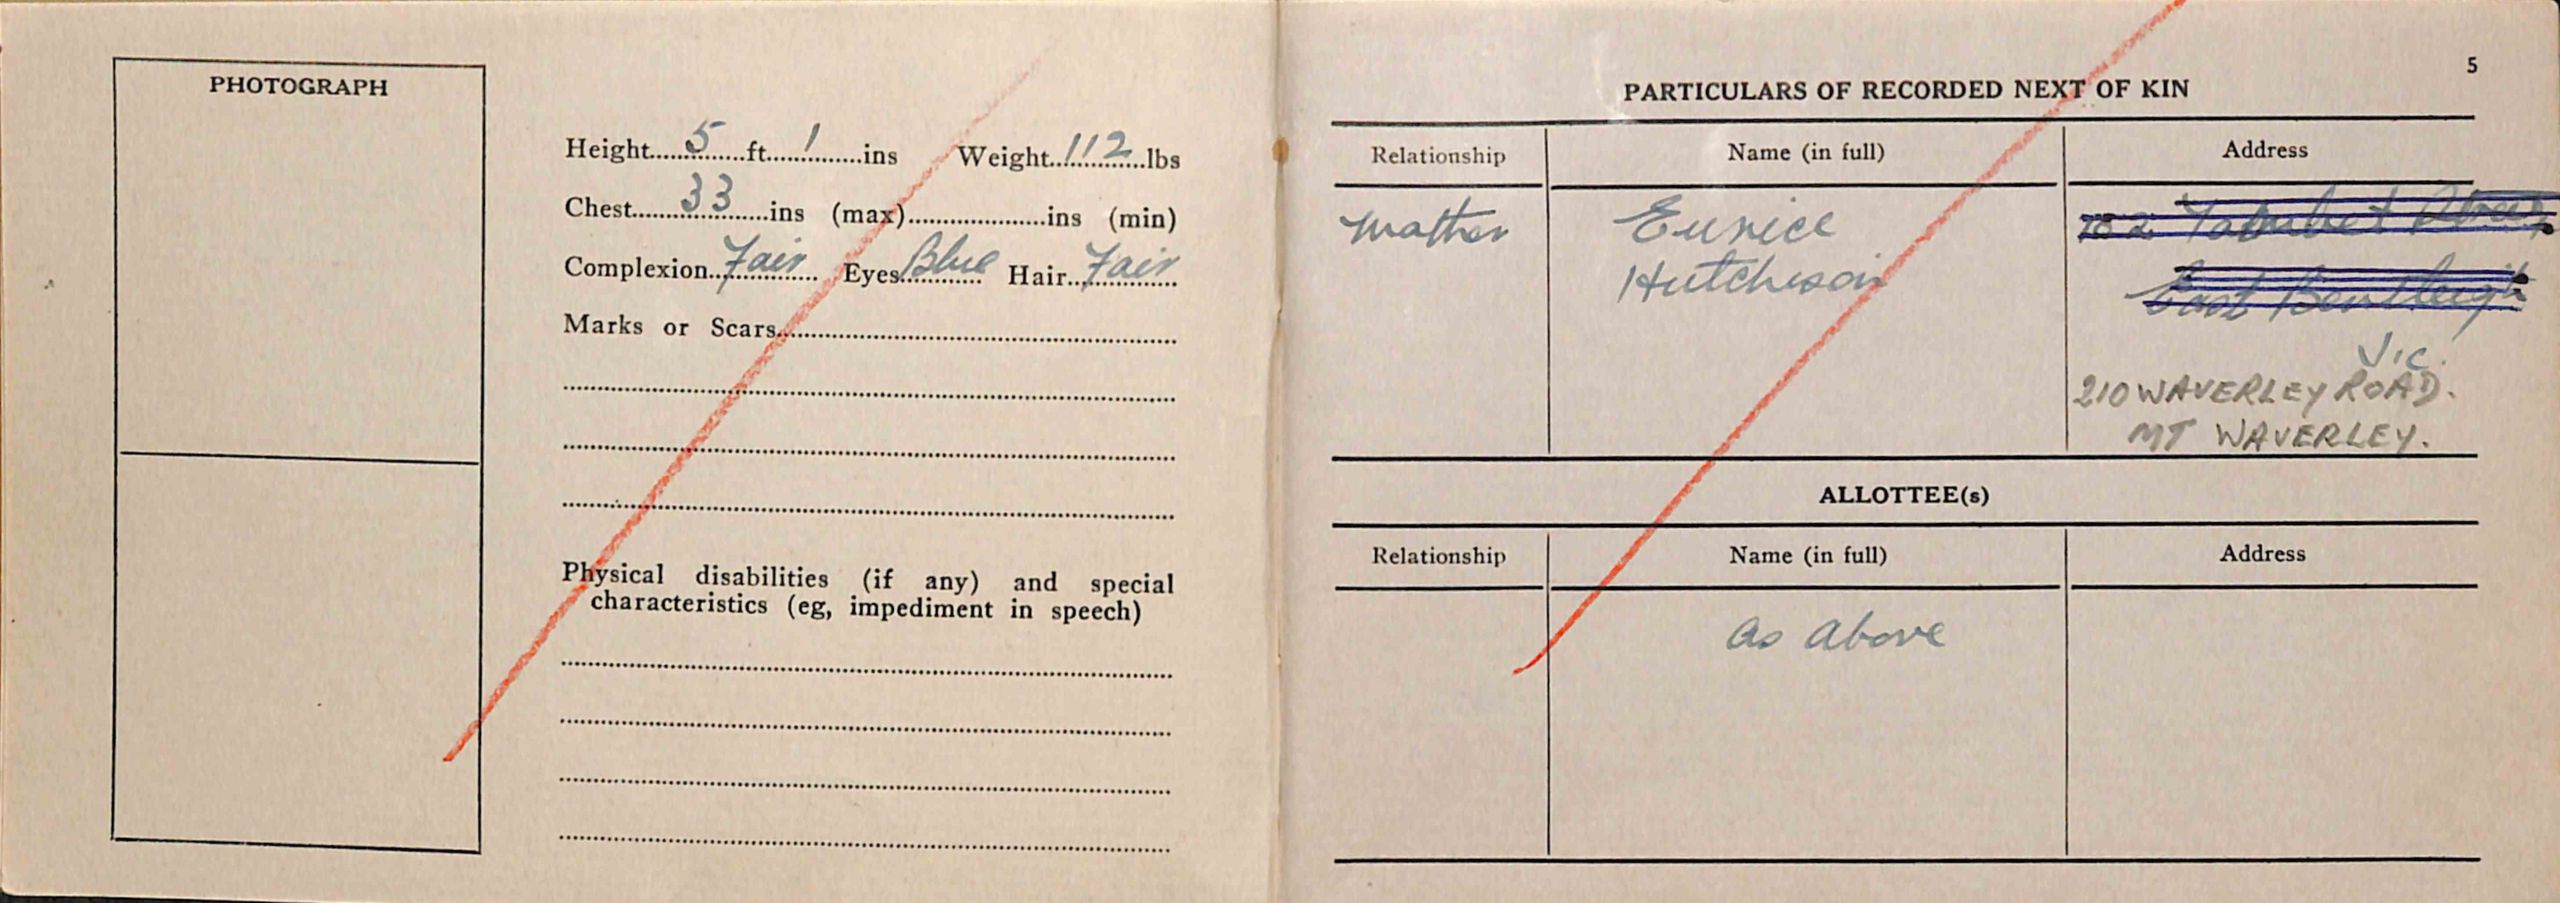 PHOTOGRAPH
Height 5 ft 1 ins Weight 112 lbs
Chest 33 ins (max) ins (min)
Complexion Fair Eyes Blue Hair Fair
Marks or Scars
Physical disabilities (if any) and special
characteristics (eg, impediment in speech)
5
PARTICULARS OF RECORDED NEXT OF KIN
Relationship Name (in full) Address
Mother Eunice
Hutchison East Bentleigh
Vic.
210 WAVERLEY ROAD.
MT WAVERLEY.
ALLOTTEE(s)
Relationship Name (in full) Address
as above